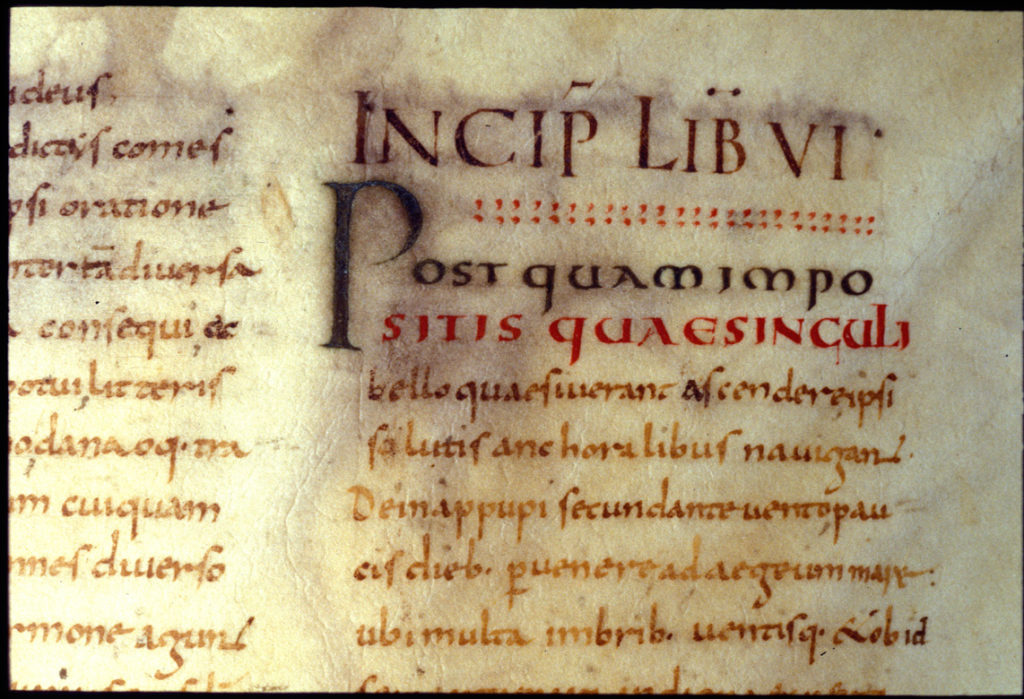 deus
dictis comes
psi oratione
diversa
consequi, &
litteris
cuiquam
diverso
rmone agunt
INCIP̄ LIB̈ VI
POST QUAM IMPO
SITIS QUAE SINGULI
bello quaesiverant ascendere ipsi
solutis anchoralibus navigant.
Dein a puppi secundante vento pau
cis dieb. pvenere ad aegeum mare.
ubi multa imbrib. ventisq. & ob id